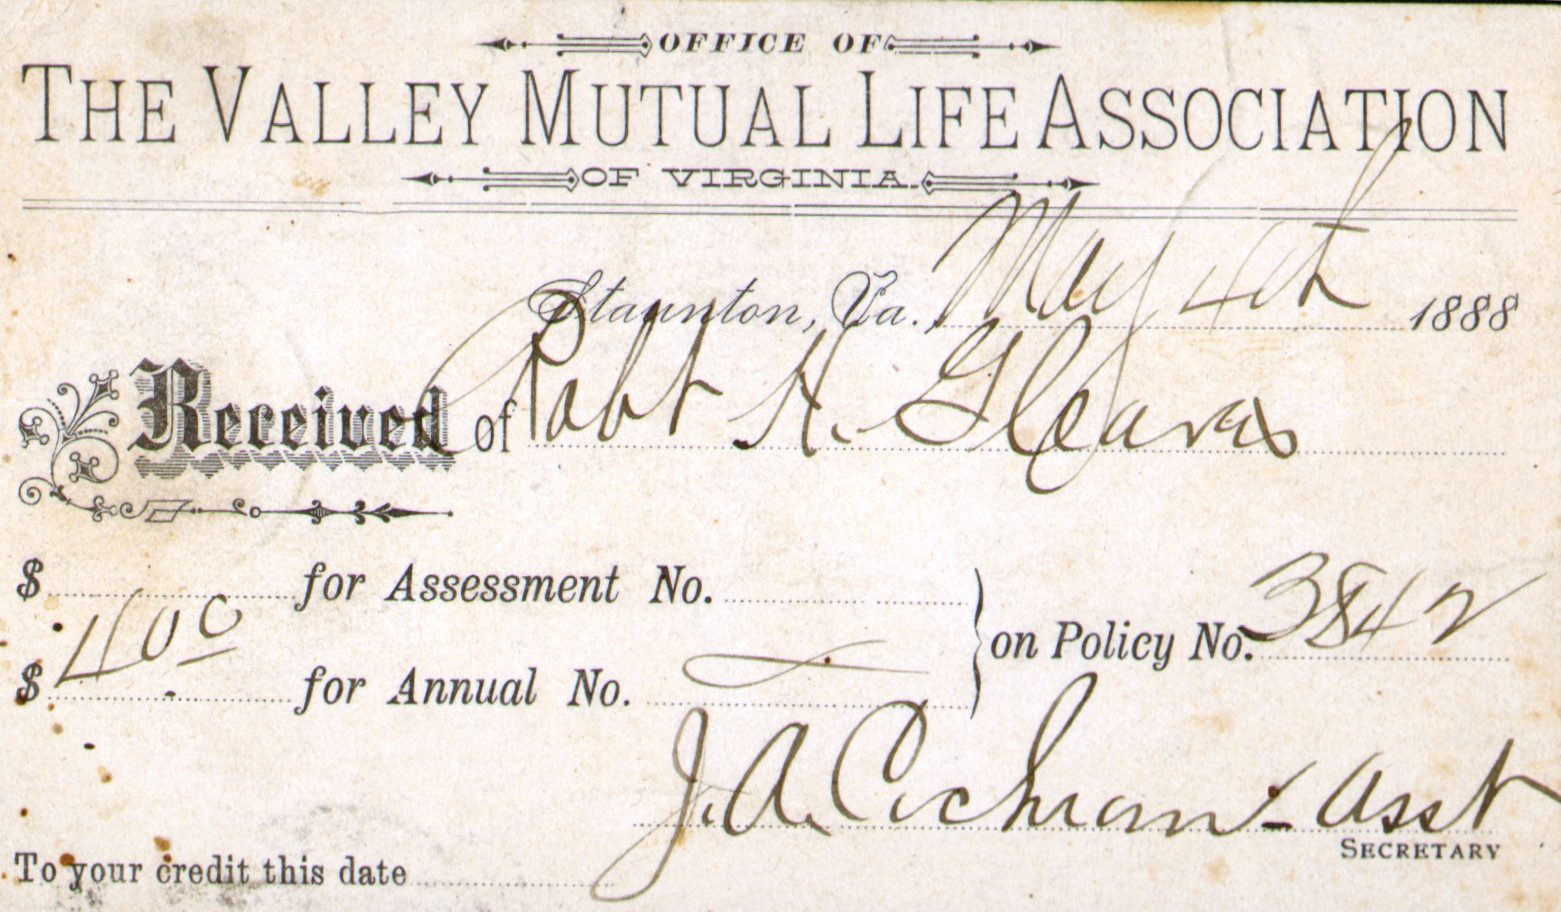 OFFICE OF
THE VALLEY MUTUAL LIFE ASSOCIATION
OF VIRGINIA.
Staunton, Va., May 4th 1888
Received of Robt H. Gleaves
$ for Assessment No.
$ 4 00 for Annual No.
on Policy No. 3842
J. A. Cochran - Asst
SECRETARY
To your credit this date